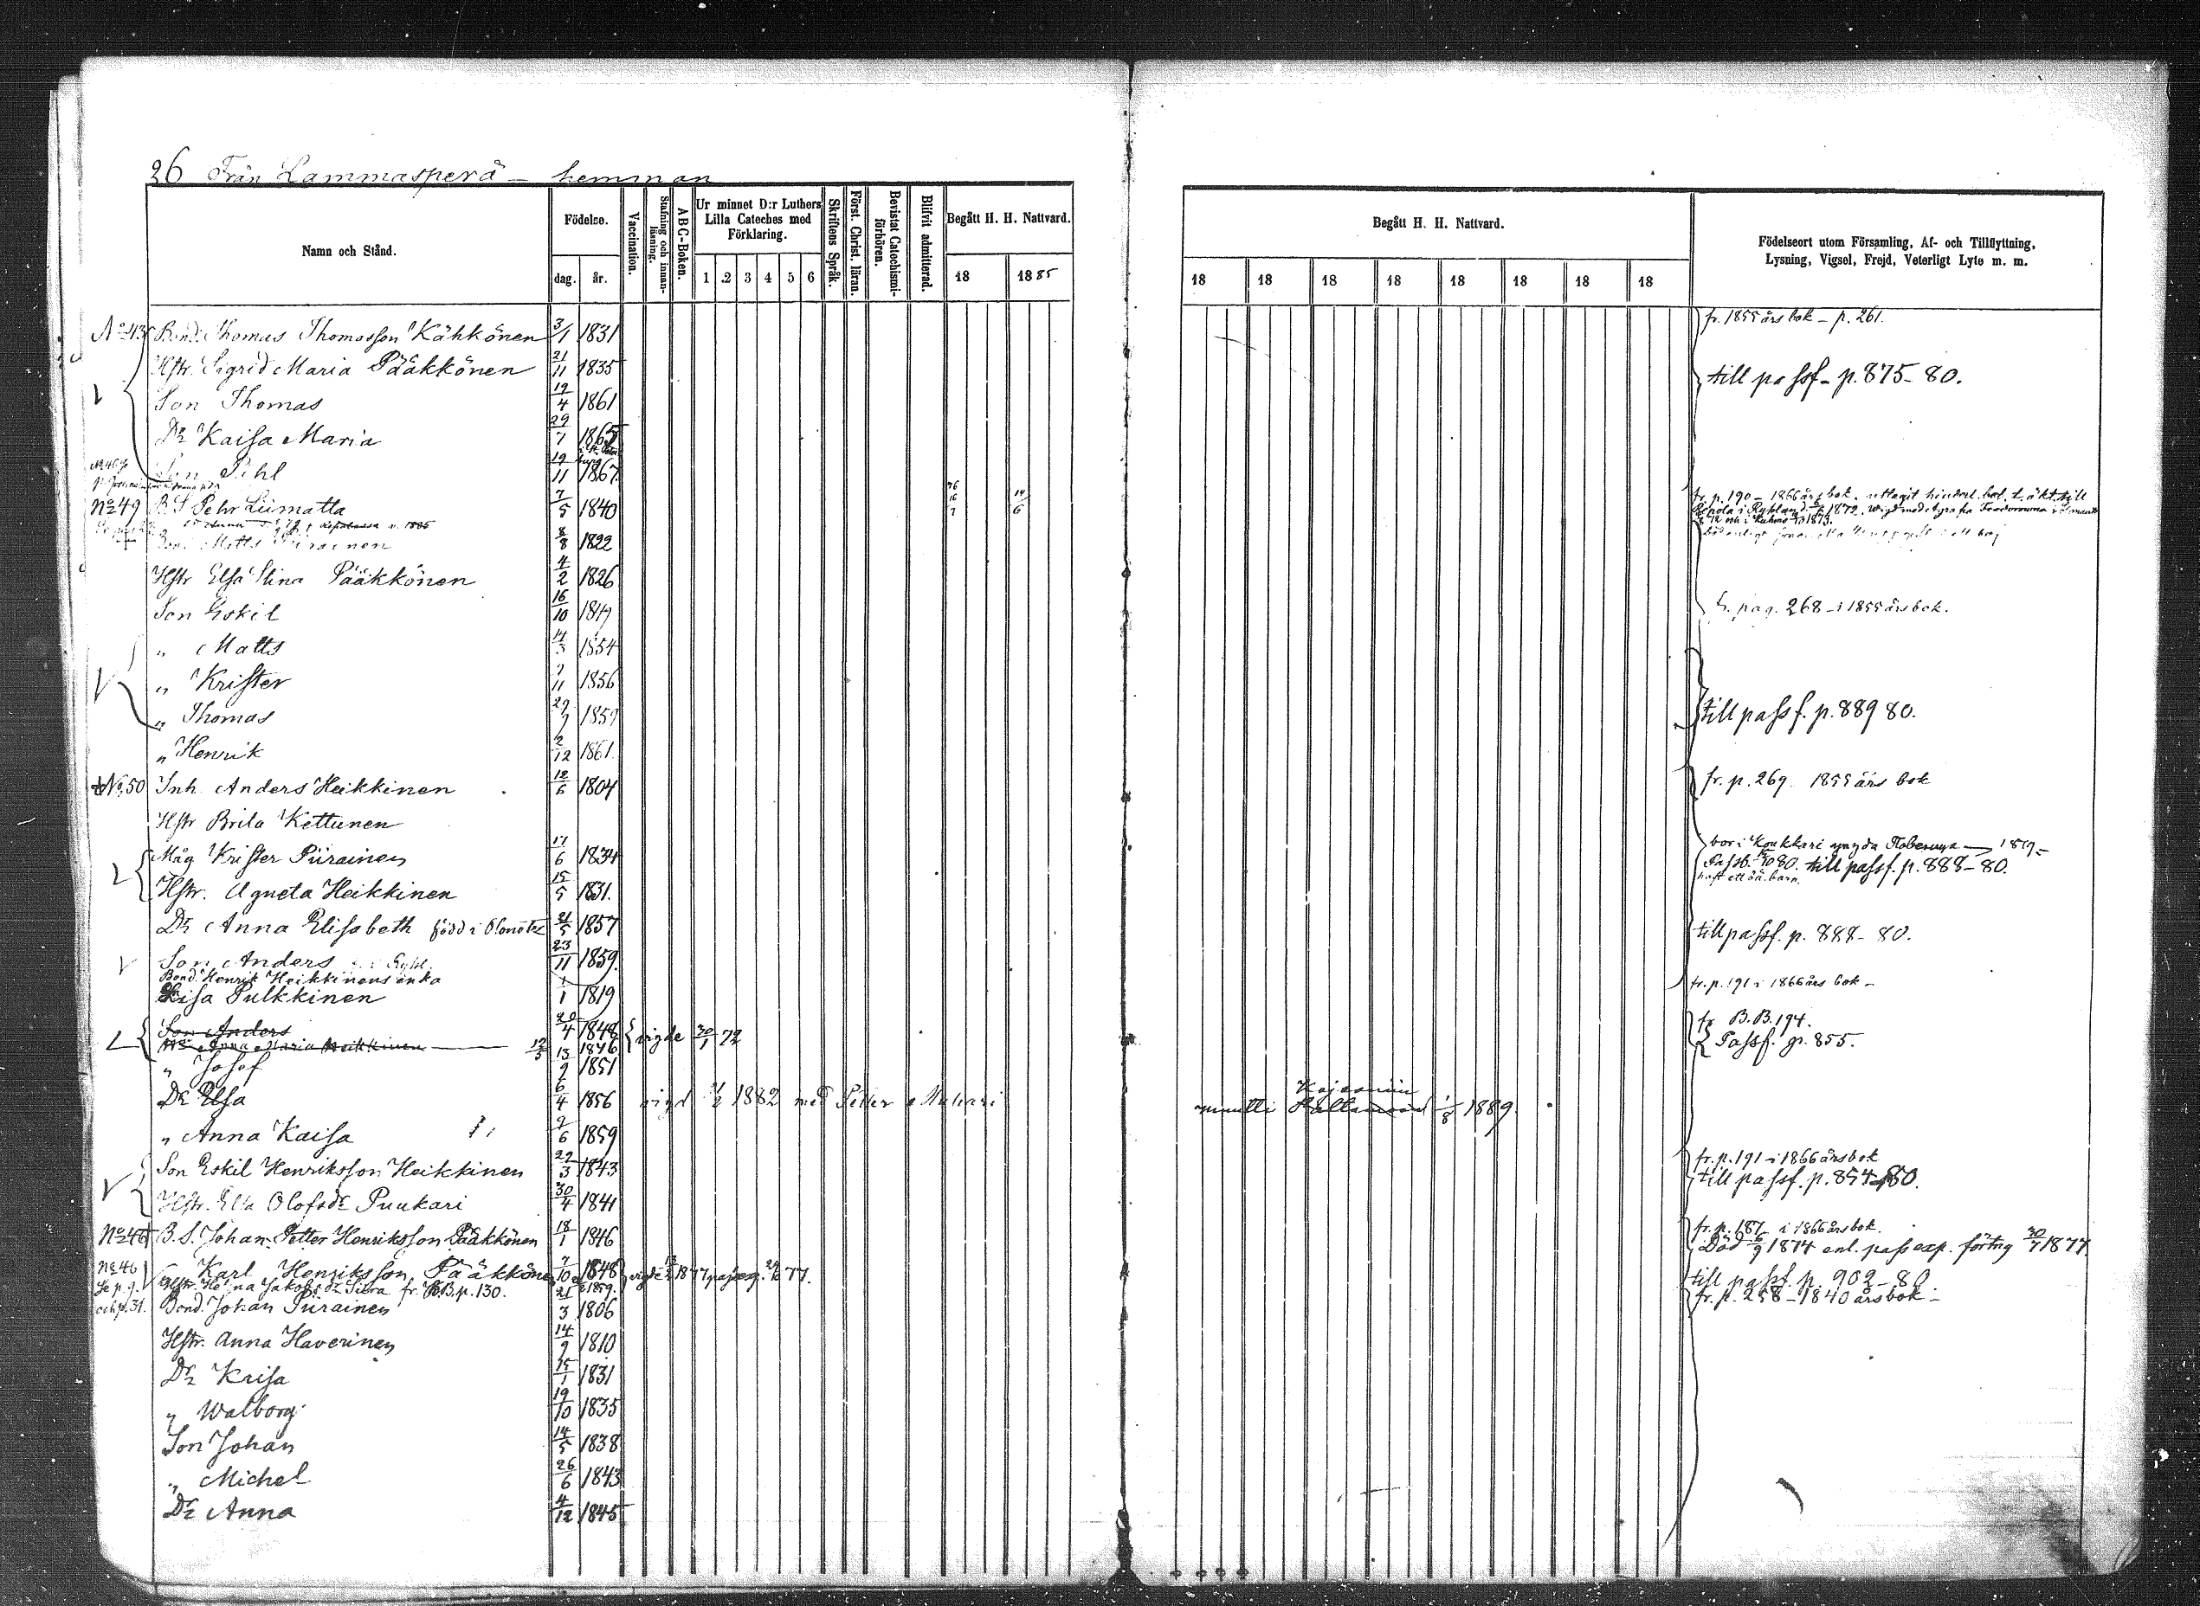 26 Från Lammasperä - hemman
Namn och Stånd.
Födelse.
dag. år.
Vaccination.
Stafning och innanläsning.
ABC-Boken.
Ur minnet D:r Luthers Lilla Cateches med Förklaring.
1 2 3 4 5 6
Skriftens Språk.
Först. Christ. läran.
Bevistat Catechismiförhören.
Blifvit admitterad.
Begått H. H. Nattvard.
18 1885
Begått H. H. Nattvard.
18 18 18 18 18 18 18 18
Födelseort utom Församling, Af- och Tillflyttning,
Lysning, Vigsel, Frejd, Veterligt Lyte m. m.
Bond. Thomas Thomasson Kähkönen 3/1 1831 fr. 1855 års bok - p. 261.
Hstr. Sigrid Maria Pääkkönen 21/11 1835 till passf - p. 875-80.
Son Thomas 19/4 1861
Dr Kaisa Maria 29/7 1865
Son Pehl 19/11 1867
No 49 B. S. Pehr Liimatta 7/5 1840 fr. p. 190 - 1866 års bok
Bond Matts Piirainen 8/8 1822
Hstr Elsa Stina Pääkkönen 4/2 1826
Son Eskil 16/10 1849 pag. 268 - i 1855 års bok.
" Matts 1854
" Krister 7/11 1856
" Thomas 1859 till passf. p. 889 80.
" Henrik 2/12 1861
No 50 Inh. Anders Heikkinen 12/6 1804 fr. p. 269 1855 års bok
Hstr Brita Kettunen
Måg Krister Piirainen 17/6 1834 bor i Koukkari
80. till passf. p. 888-80.
haft ett oä. barn.
Hstr. Agneta Heikkinen 15/5 1831.
Dr Anna Elisabeth född i Olonetz 21/5 1857 till passf. p. 888-80.
Son Anders 23/11 1859.
Bond. Henrik Heikkinens enka
Lisa Pulkkinen 1/1 1819 fr. p. 191 i 1866 års bok -
Son Anders 20/4 1848 vigde 30/1 72 fr. B.B. 194.
Anna Maria Heikkinen 12/3 1846 Passf. p. 855.
" Josef 1851
Dr Elsa 6/4 1856 vigd 1882 med Petter Mukari muutti Kajaaniin 1/8 1889.
" Anna Kaisa 2/6 1859
Son Eskil Henriksson Heikkinen 22/3 1843 fr. p. 191 i 1866 års bok
Hstr. Olofsdr Puukari 30/4 1841 till passf. p. 854-80.
No 46 B. S. Johan Petter Henriksson Pääkkönen 18/1 1846 fr. p. 187 i 1866 års bok.
Död 1874 enl. passexp. förtng 30/7 1877
No 46 Karl Henriksson Pääkkönen 7/10 1848 vigde 1877 till passf. p. 902-80
fr. B.B. p. 130. 1859.
Bond. Johan Piirainen 21/3 1806 fr. p. 258 - 1840 års bok -
Hstr. Anna Haverinen 14/9 1810
Dr Kaisa 15/1 1831
" Walborg 19/10 1835
Son Johan 14/5 1838
" Michel 26/6 1843
Dr Anna 4/12 1845